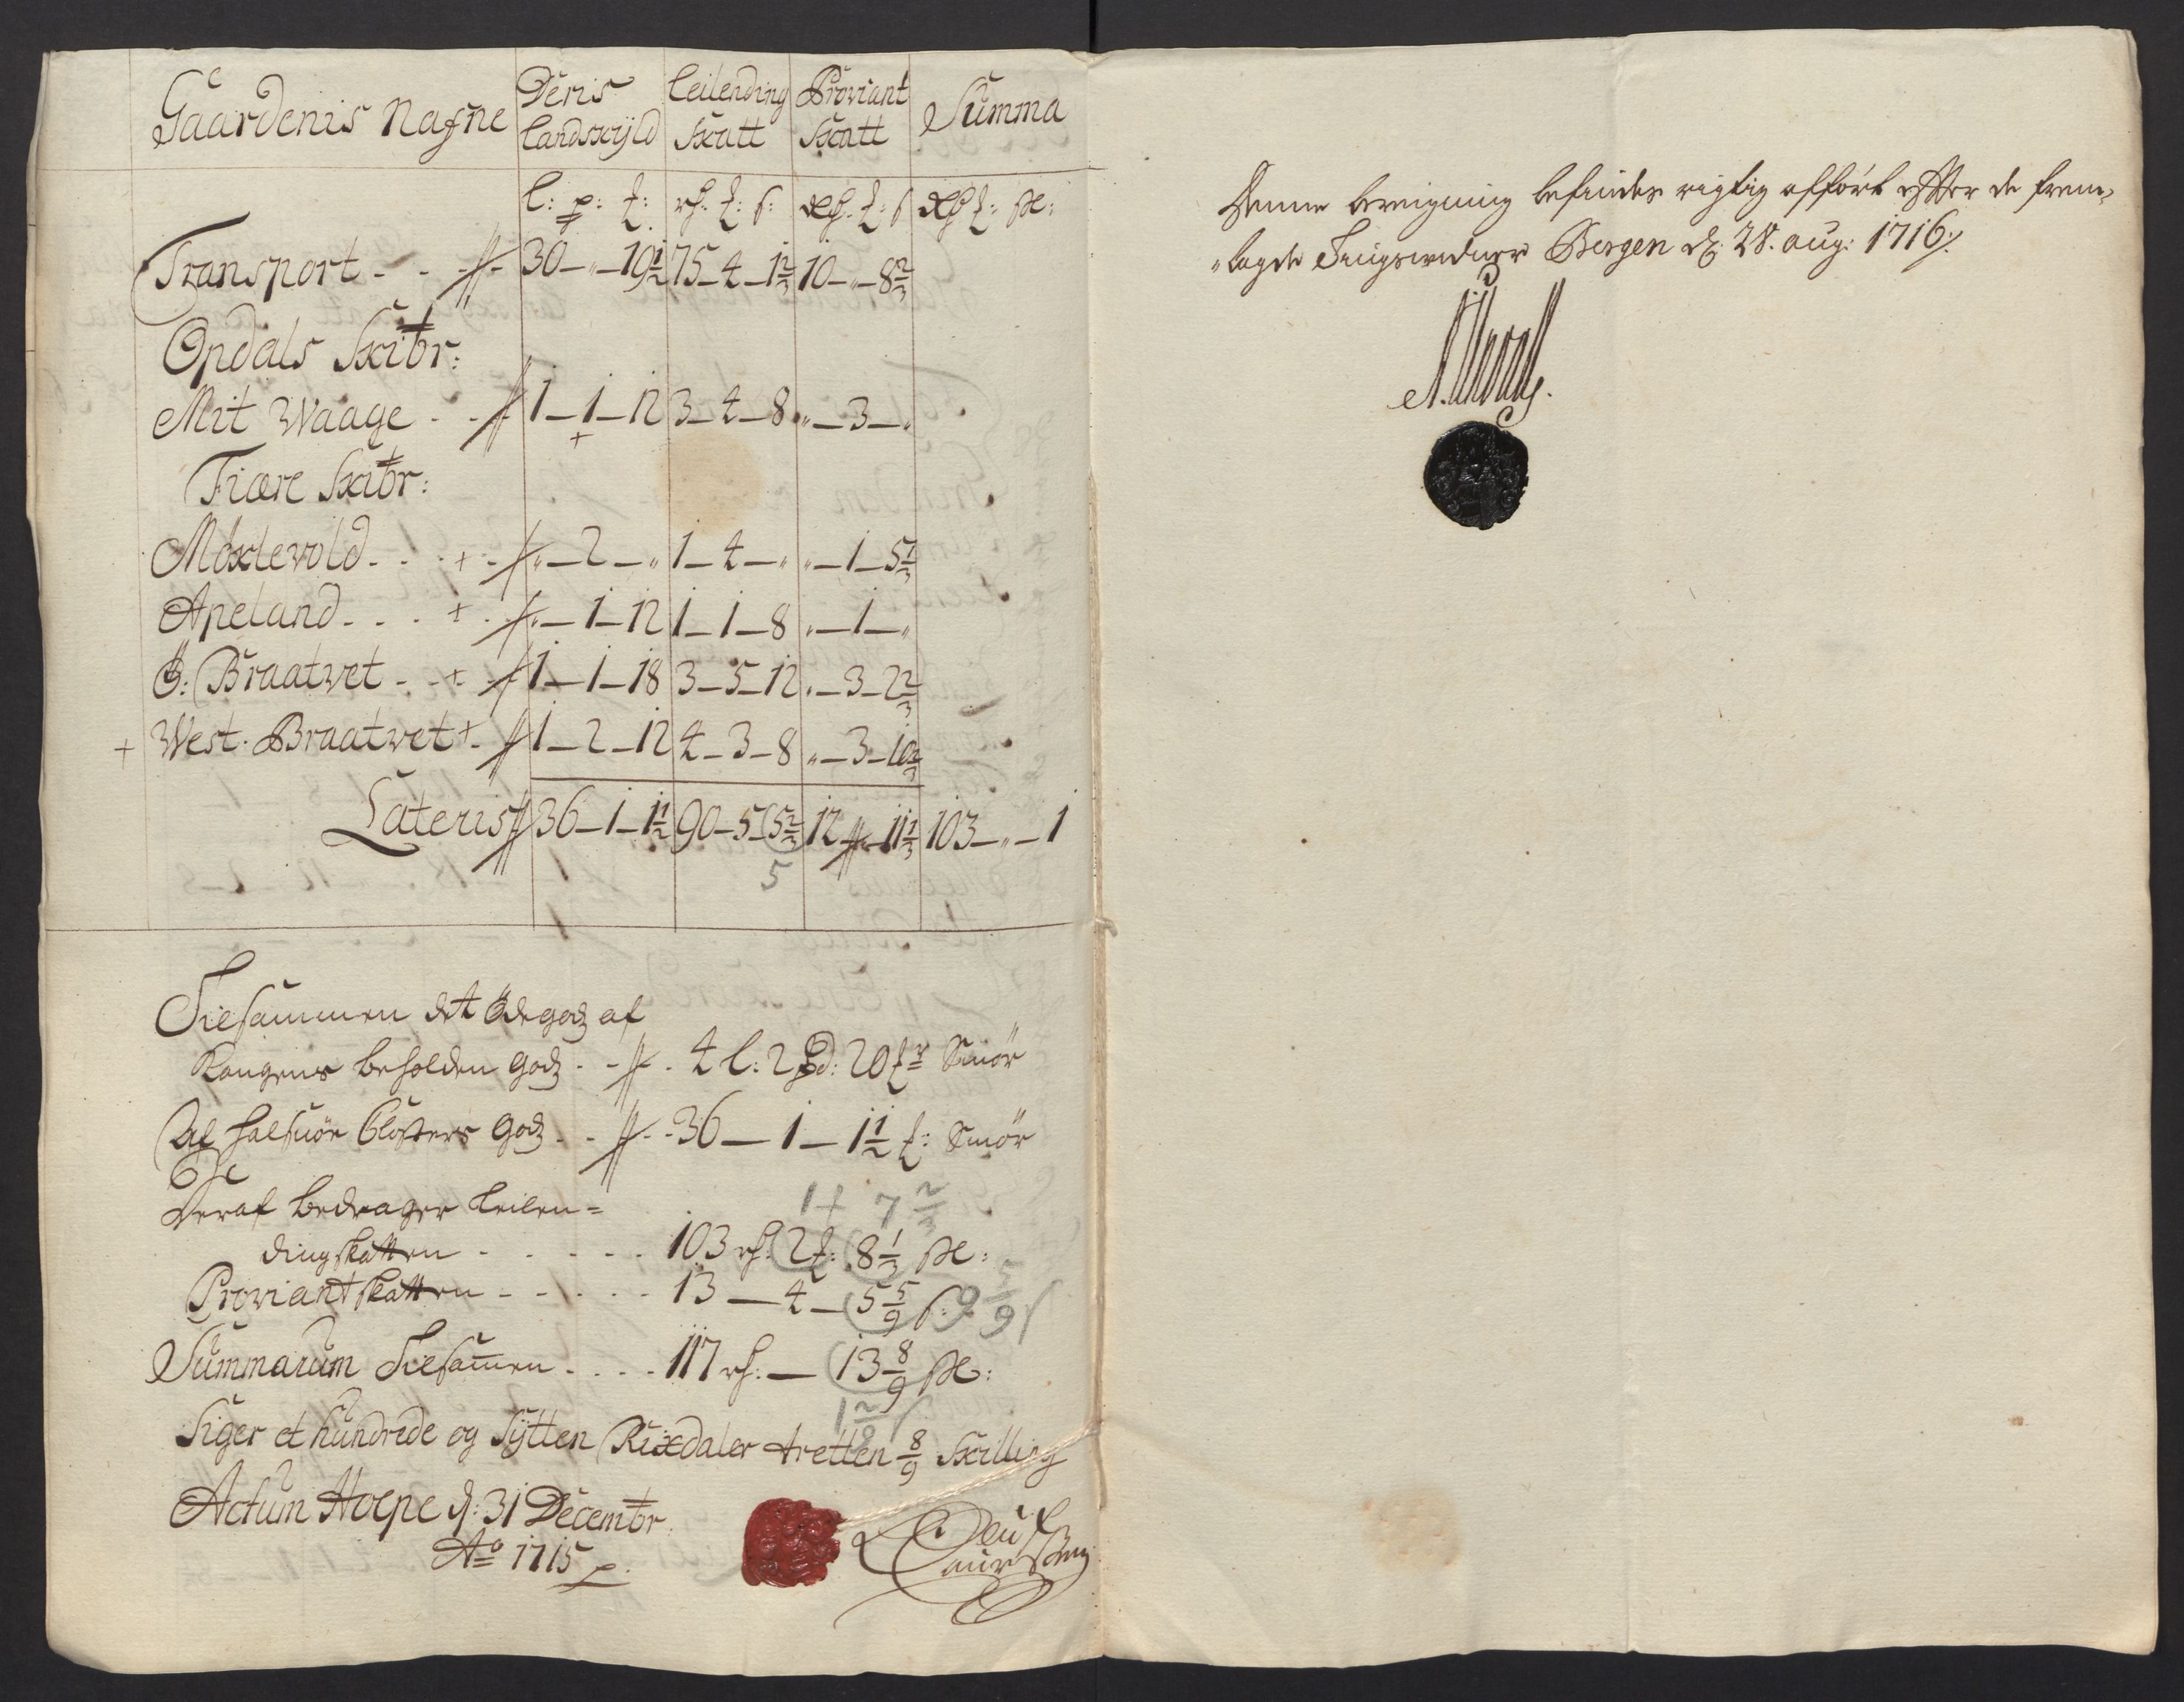 Gaardenis Nafne Deris Landskyld Leilending Skatt Proviant Skatt Summa
l: p: t: rh: t: s: dlh: t: s dh t: sl:
Transport - - - 30 — " — 19 1/2 75 — 4 — 1 2/3 10 — " — 8 2/3
Opdals Skibr:
Mit Waage - - 1 — 1 — 12 3 — 4 — 8 " — 3 — "
+
Fiære Skibr:
Møxlevold - - - + - " — 2 — " 1 — 4 — " " — 1 — 5 1/3
Apeland - - - + - " — 1 — 12 1 — 1 — 8 " — 1 — "
Ö: Braatvet - - + - 1 — 1 — 18 3 — 5 — 12 " — 3 — 2 2/3
+ West. Braatvet + - 1 — 2 — 12 4 — 3 — 8 " — 3 — 10 2/3
Lateris 36 — 1 — 1 1/2 90 — 5 — 5 2/3 12 — 11 1/3 103 — " — 1
5
Tilsammen det Ödegodz af
Kongens beholden godz - - 4 l: 2 pd: 20 tr Smör
Af Halsnöe Closters Godz - - 36 — 1 — 1 1/2 t: Smör
Deraf bedrager Leilen=
1 t 7 2/3
dingskatten - - - - - 103 rh: 2 t: 8 1/3 sl:
Proviantskatten - - - - - 13 — 4 — 5 5/9 s: 9 5/9 s
Summarum Tilsamen - - - - 117 rh: — 13 8/9 sl:
1 2/9 s
Siger et hundrede og Sytten Rixdaler tretten 8/9 Skilling
Actum Hope d: 31 Decembr:
Ao 1715
Denne bereigning befindes rigtig afført efter de frem=
"lagde Tingsvidner Bergen d: 28. aug: 1716